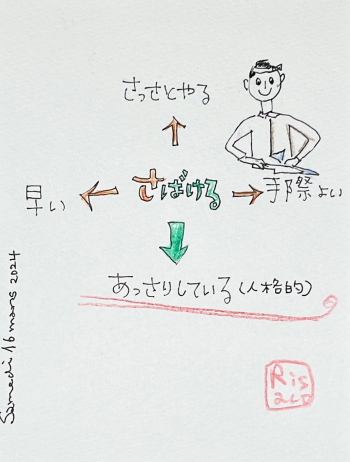 さっさとやる
早い
さばける
手際よい
あっさりしている(人格的)
Samedi 16 mars 2024
Ris